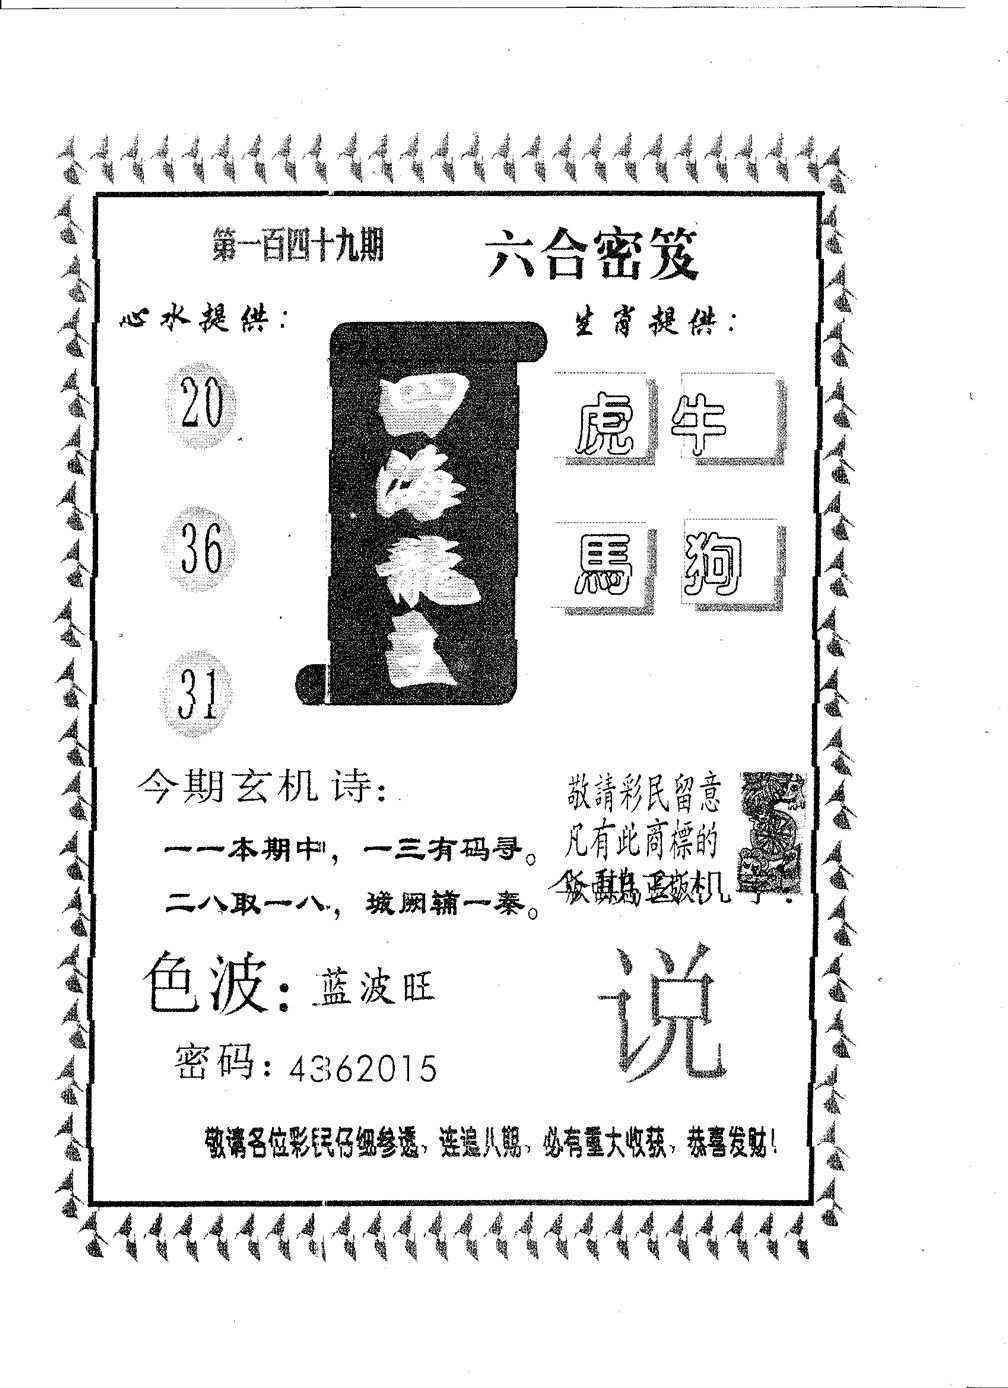 第一百四十九期
六合密笈
心水提供：
生肖提供：
20
36
31
四海龍
虎 牛
馬 狗
今期玄机诗：
一一本期中，一三有码寻。
二八取一八，城阙辅一秦。
敬請彩民留意
凡有此商標的
正版
色波：蓝波旺
密码：4362015
说
敬请各位彩民仔细参透，连追八期，必有重大收获，恭喜发财！